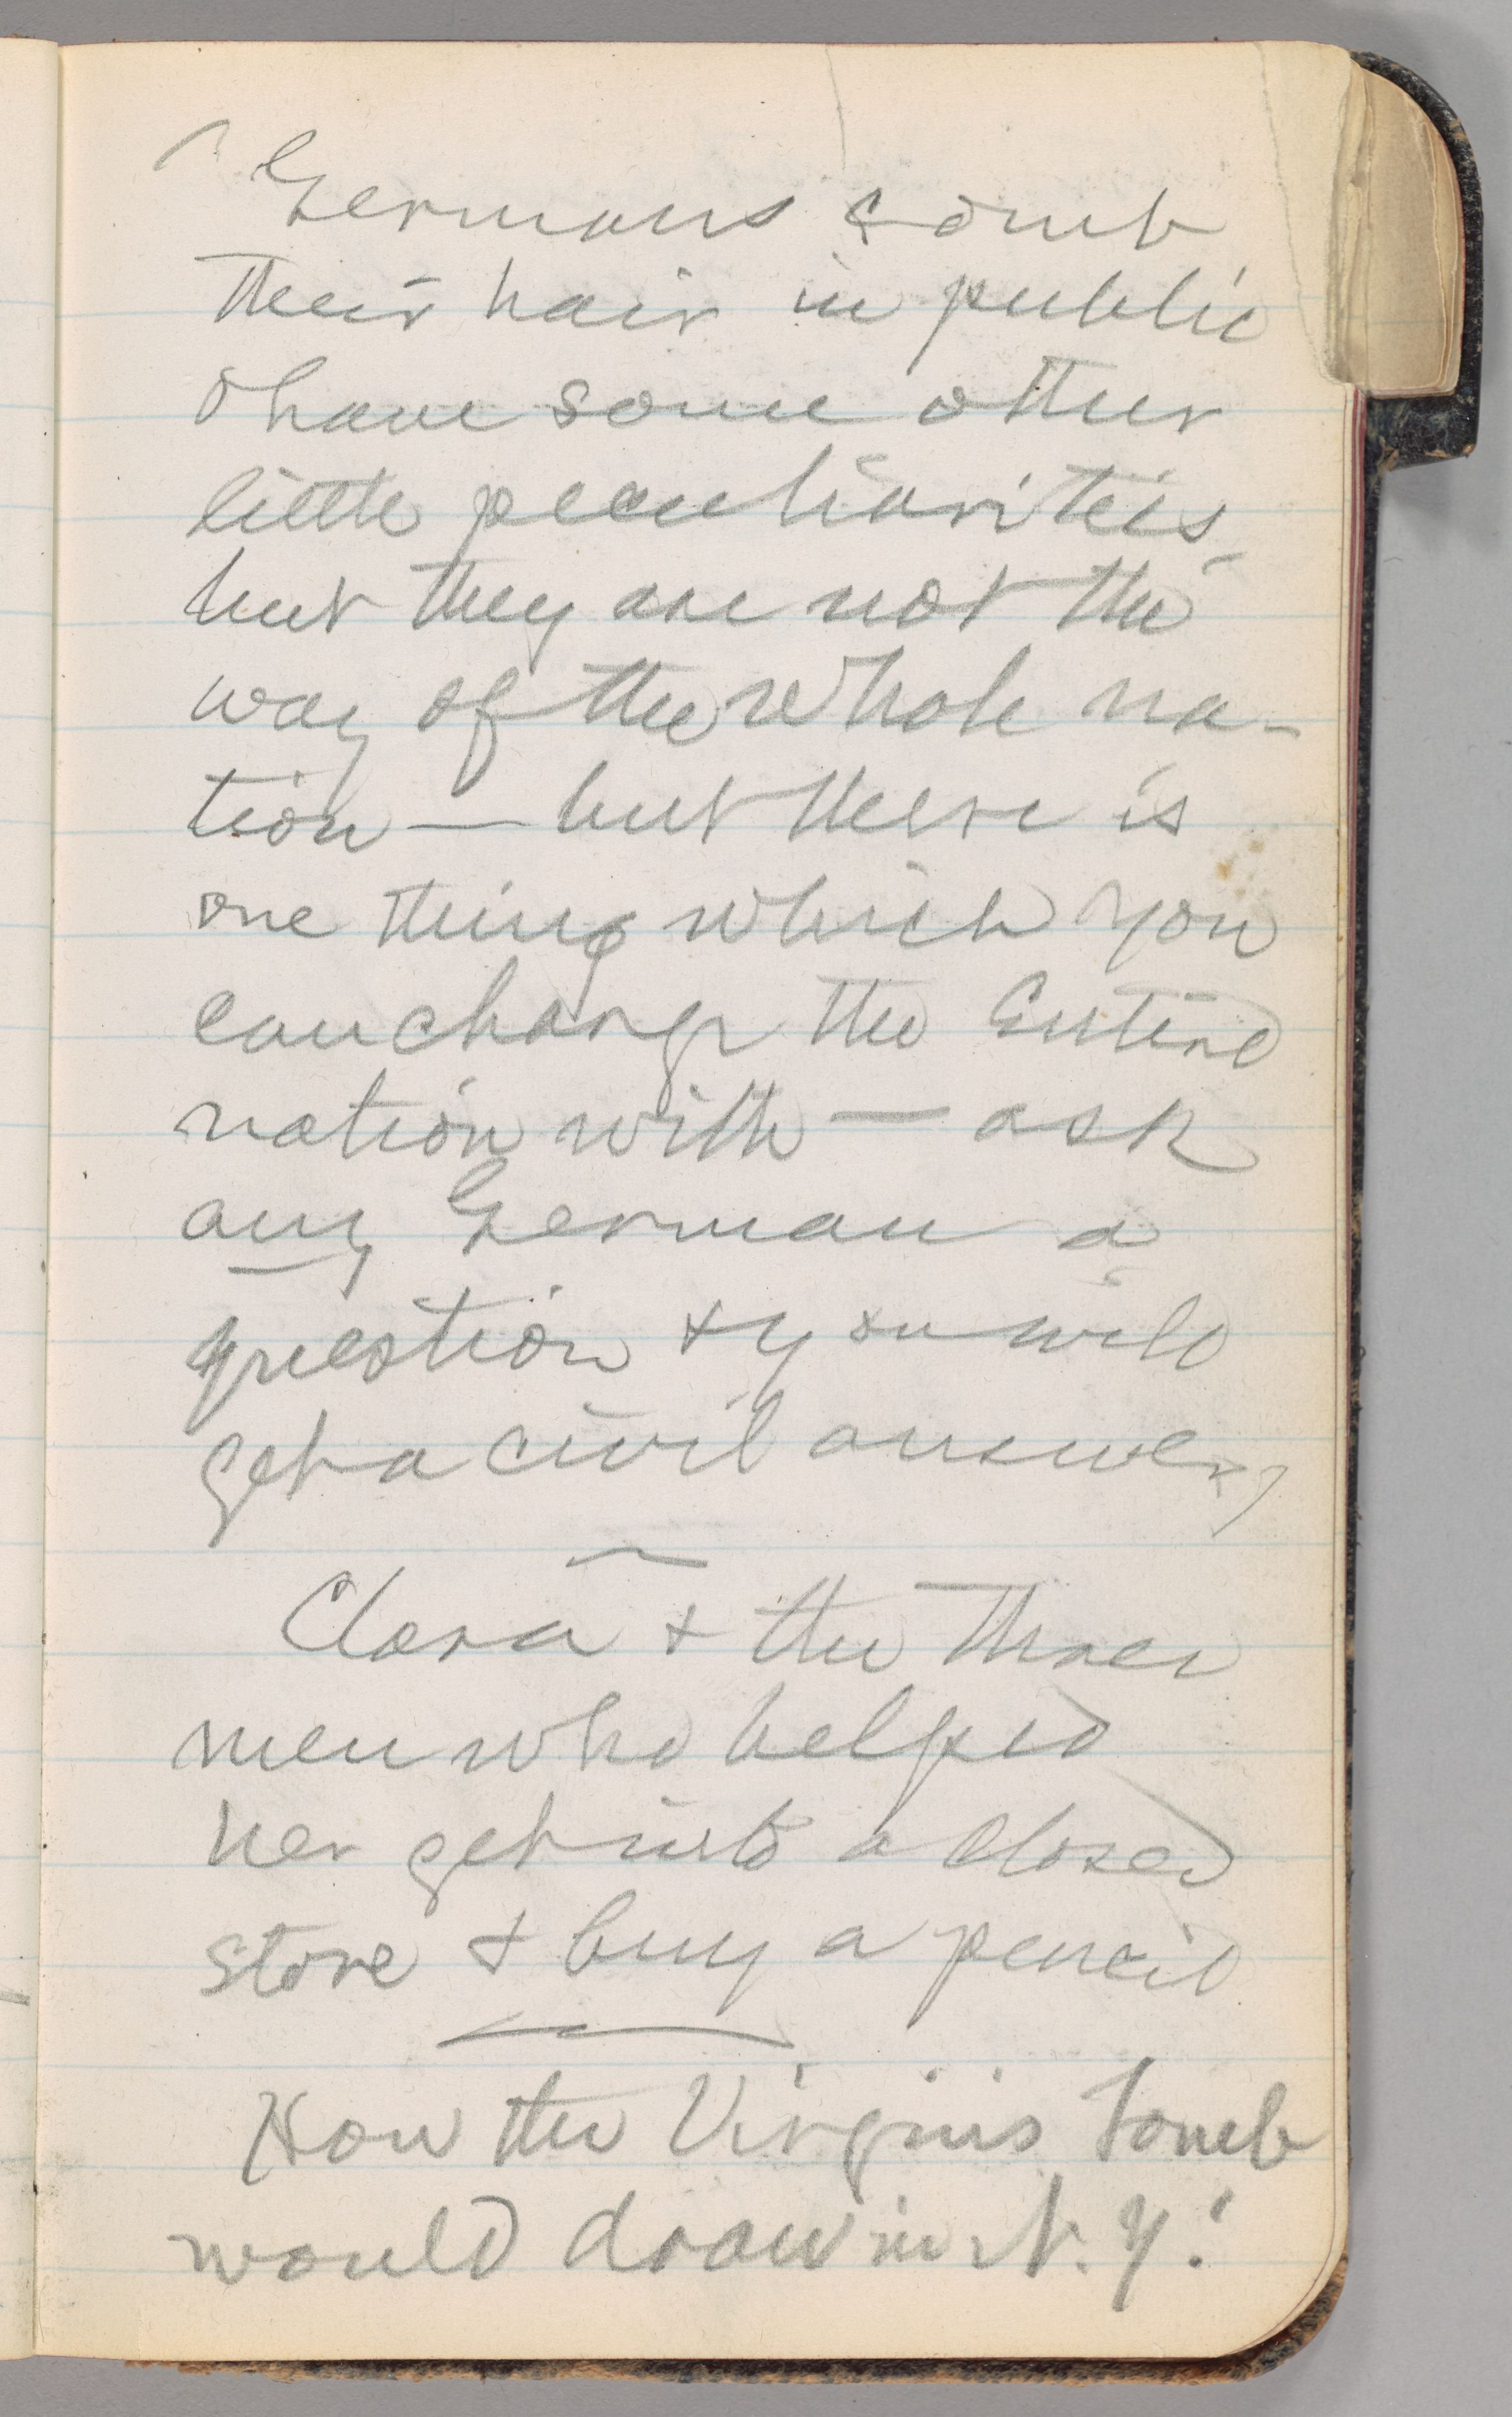 Germans comb
their hair in public
& have some other
little peculiarities,
but they are not the
way of the whole na-
tion — but there is
one thing which you
can charge the entire
nation with — ask
any German a
question & you will
get a civil answer,
Clara & the three
men who helped
her get into a closed
store & buy a pencil
How the Virgin's Tomb
would draw in N. Y.!